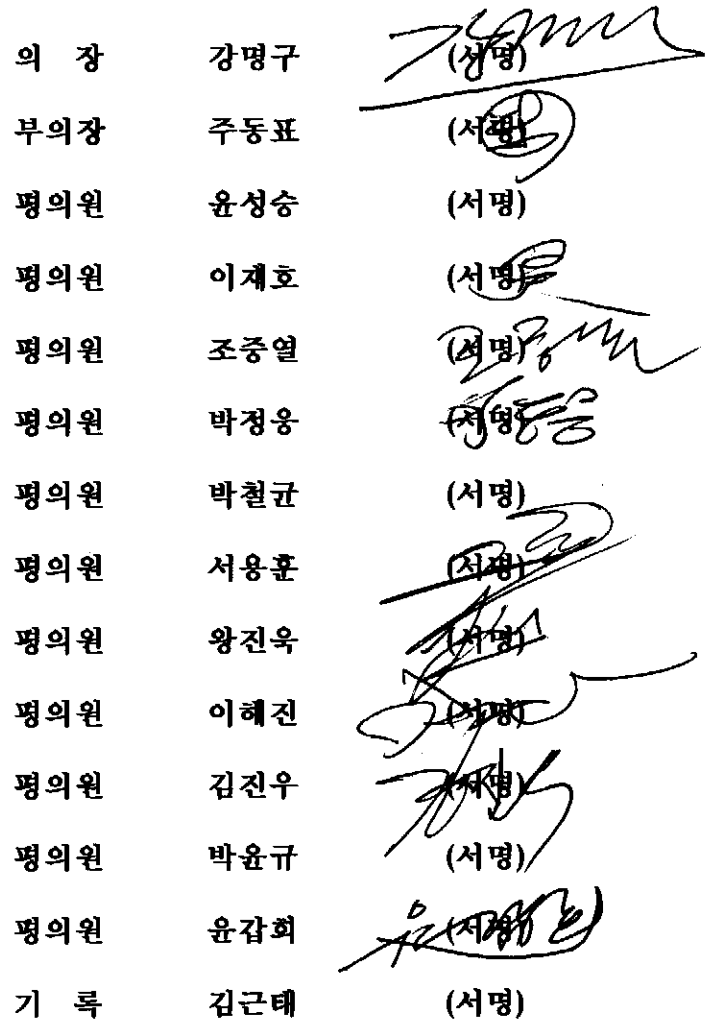 의 장 강명구 (서명)
부의장 주동표 (서명)
평의원 윤성승 (서명)
평의원 이재호 (서명)
평의원 조중열 (서명)
평의원 박정웅 (서명)
평의원 박철균 (서명)
평의원 서용훈 (서명)
평의원 왕진욱 (서명)
평의원 이해진 (서명)
평의원 김진우 (서명)
평의원 박윤규 (서명)
평의원 윤갑희 (서명)
기 록 김근태 (서명)